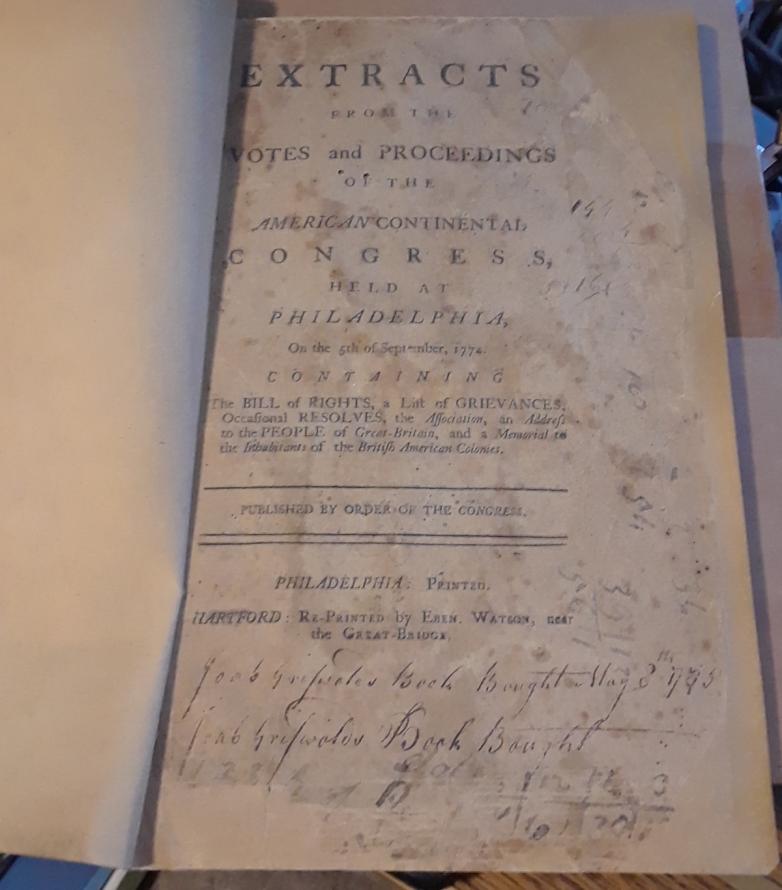 EXTRACTS
FROM THE
VOTES and PROCEEDINGS
OF THE
AMERICAN CONTINENTAL
CONGRESS,
HELD AT
PHILADELPHIA,
On the 5th of September, 1774.
CONTAINING
The BILL of RIGHTS, a List of GRIEVANCES,
Occaſional RESOLVES, the Aſſociation, an Addreſs
to the PEOPLE of Great-Britain, and a Memorial to
the Inhabitants of the Britiſh American Colonies.
PUBLISHED BY ORDER OF THE CONGRESS.
PHILADELPHIA: PRINTED.
HARTFORD: RE-PRINTED by EBEN. WATSON, near
the GREAT-BRIDGE.
Joab Griſwolds Book Bought May 8th
Joab Griſwolds Book Bought